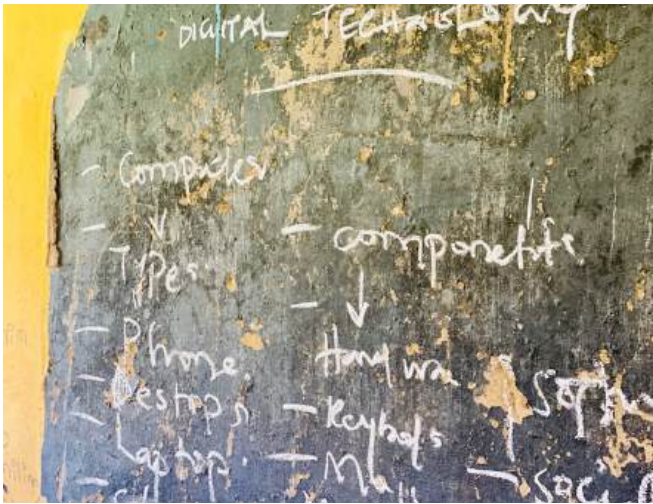 DIGITAL TECHNOLOGY
- Computer
- ↓
Types
- Phone.
- Destops
- Laptop.
- components
- ↓
Hardwa
- Keybods